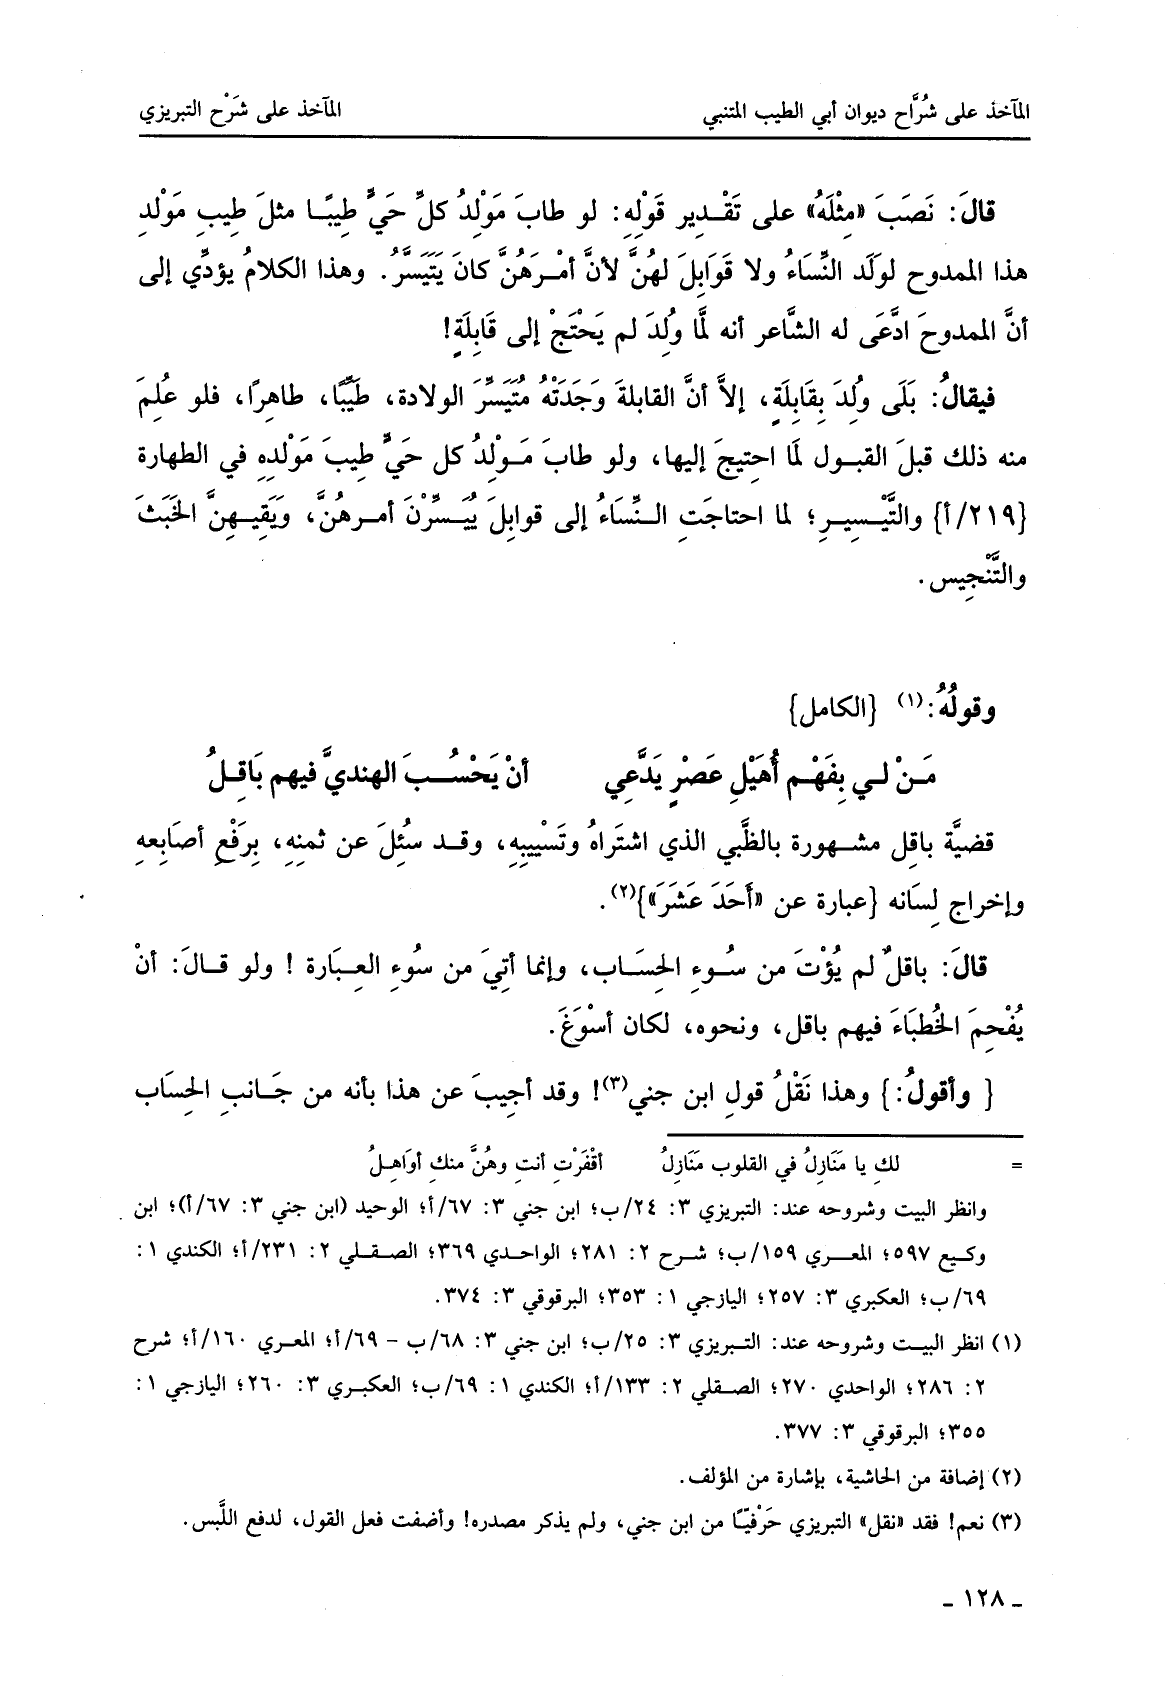 المآخذ على شُرَّاح ديوان أبي الطيب المتنبي
المآخذ على شَرْح التبريزي
قالَ: نَصَبَ «مِثْلَهُ» على تَقْدِير قَوْلِهِ: لو طابَ مَوْلِدُ كلِّ حَيٍّ طِيبًا مثلَ طِيبِ مَوْلدِ
هذا الممدوح لوَلَد النِّسَاءُ ولا قَوَابِلَ لهُنَّ لأنَّ أمْرَهُنَّ كانَ يَتَيَسَّرُ. وهذا الكلامُ يؤدِّي إلى
أنَّ الممدوحَ ادَّعَى له الشَّاعر أنه لمَّا وُلِدَ لم يَحْتَجْ إلى قَابِلَةٍ!
فيقالُ: بَلَى وُلِدَ بِقَابِلَةٍ، إلاَّ أنَّ القابلةَ وَجَدَتْهُ مُتَيَسِّرَ الولادة، طَيِّبًا، طاهِرًا، فلو عُلِمَ
منه ذلك قبلَ القبول لَمَا احتِيجَ إليها، ولو طابَ مَوْلِدُ كل حَيٍّ طِيبَ مَوْلدِهِ في الطهارة
{٢١٩/أ} والتَّيْسِيرِ؛ لما احتاجَتِ النِّسَاءُ إلى قوابلَ يُيَسِّرْنَ أمرهُنَّ، وَيَقِيهِنَّ الخَبَثَ
والتَّنْجِيس.
وقولُهُ:(١) {الكامل}
مَنْ لي بِفَهْمِ أُهَيْلِ عَصْرٍ يَدَّعِي أنْ يَحْسُبَ الهنديَّ فيهم بَاقِلُ
قضيَّة باقِل مشهورة بالظَّبي الذي اشتَراهُ وتَسْيِيبِهِ، وقد سئِلَ عن ثمنِهِ، برَفْعِ أصَابِعهِ
وإخراج لِسَانه {عبارة عن «أَحَدَ عَشَرَ»}(٢).
قالَ: باقلٌ لم يُؤْتَ من سُوءِ الحِسَاب، وإنما أتِيَ من سوُءِ العِبَارة ! ولو قالَ: أنْ
يُفْحِمَ الخُطبَاءَ فيهم باقل، ونحوه، لكان أسْوَغَ.
{ وأقولُ:} وهذا نَقْلُ قولِ ابن جني(٣)! وقد أجِيبَ عن هذا بأنه من جَانبِ الحِسَاب
= لكِ يا مَنَازِلُ في القلوب مَنَازِلُ أقْفَرْتِ أنتِ وهُنَّ منكِ أوَاهِلُ
وانظر البيت وشروحه عند: التبريزي ٣: ٢٤/ب؛ ابن جني ٣: ٦٧/أ؛ الوحيد (ابن جني ٣: ٦٧/أ)؛ ابن
وكيع ٥٩٧؛ المعري ١٥٩/ب؛ شرح ٢: ٢٨١؛ الواحدي ٣٦٩؛ الصقلي ٢: ٢٣١/أ؛ الكندي ١:
٦٩/ب؛ العكبري ٣: ٢٥٧؛ اليازجي ١: ٣٥٣؛ البرقوقي ٣: ٣٧٤.
(١) انظر البيت وشروحه عند: التبريزي ٣: ٢٥/ب؛ ابن جني ٣: ٦٨/ب - ٦٩/أ؛ المعري ١٦٠/أ؛ شرح
٢: ٢٨٦؛ الواحدي ٢٧٠؛ الصقلي ٢: ١٣٣/أ؛ الكندي ١: ٦٩/ب؛ العكبري ٣: ٢٦٠؛ اليازجي ١:
٣٥٥؛ البرقوقي ٣: ٣٧٧.
(٢) إضافة من الحاشية، بإشارة من المؤلف.
(٣) نعم! فقد «نقل» التبريزي حَرْفيًّا من ابن جني، ولم يذكر مصدره! وأضفت فعل القول، لدفع اللَّبس.
ـ ١٢٨ ـ